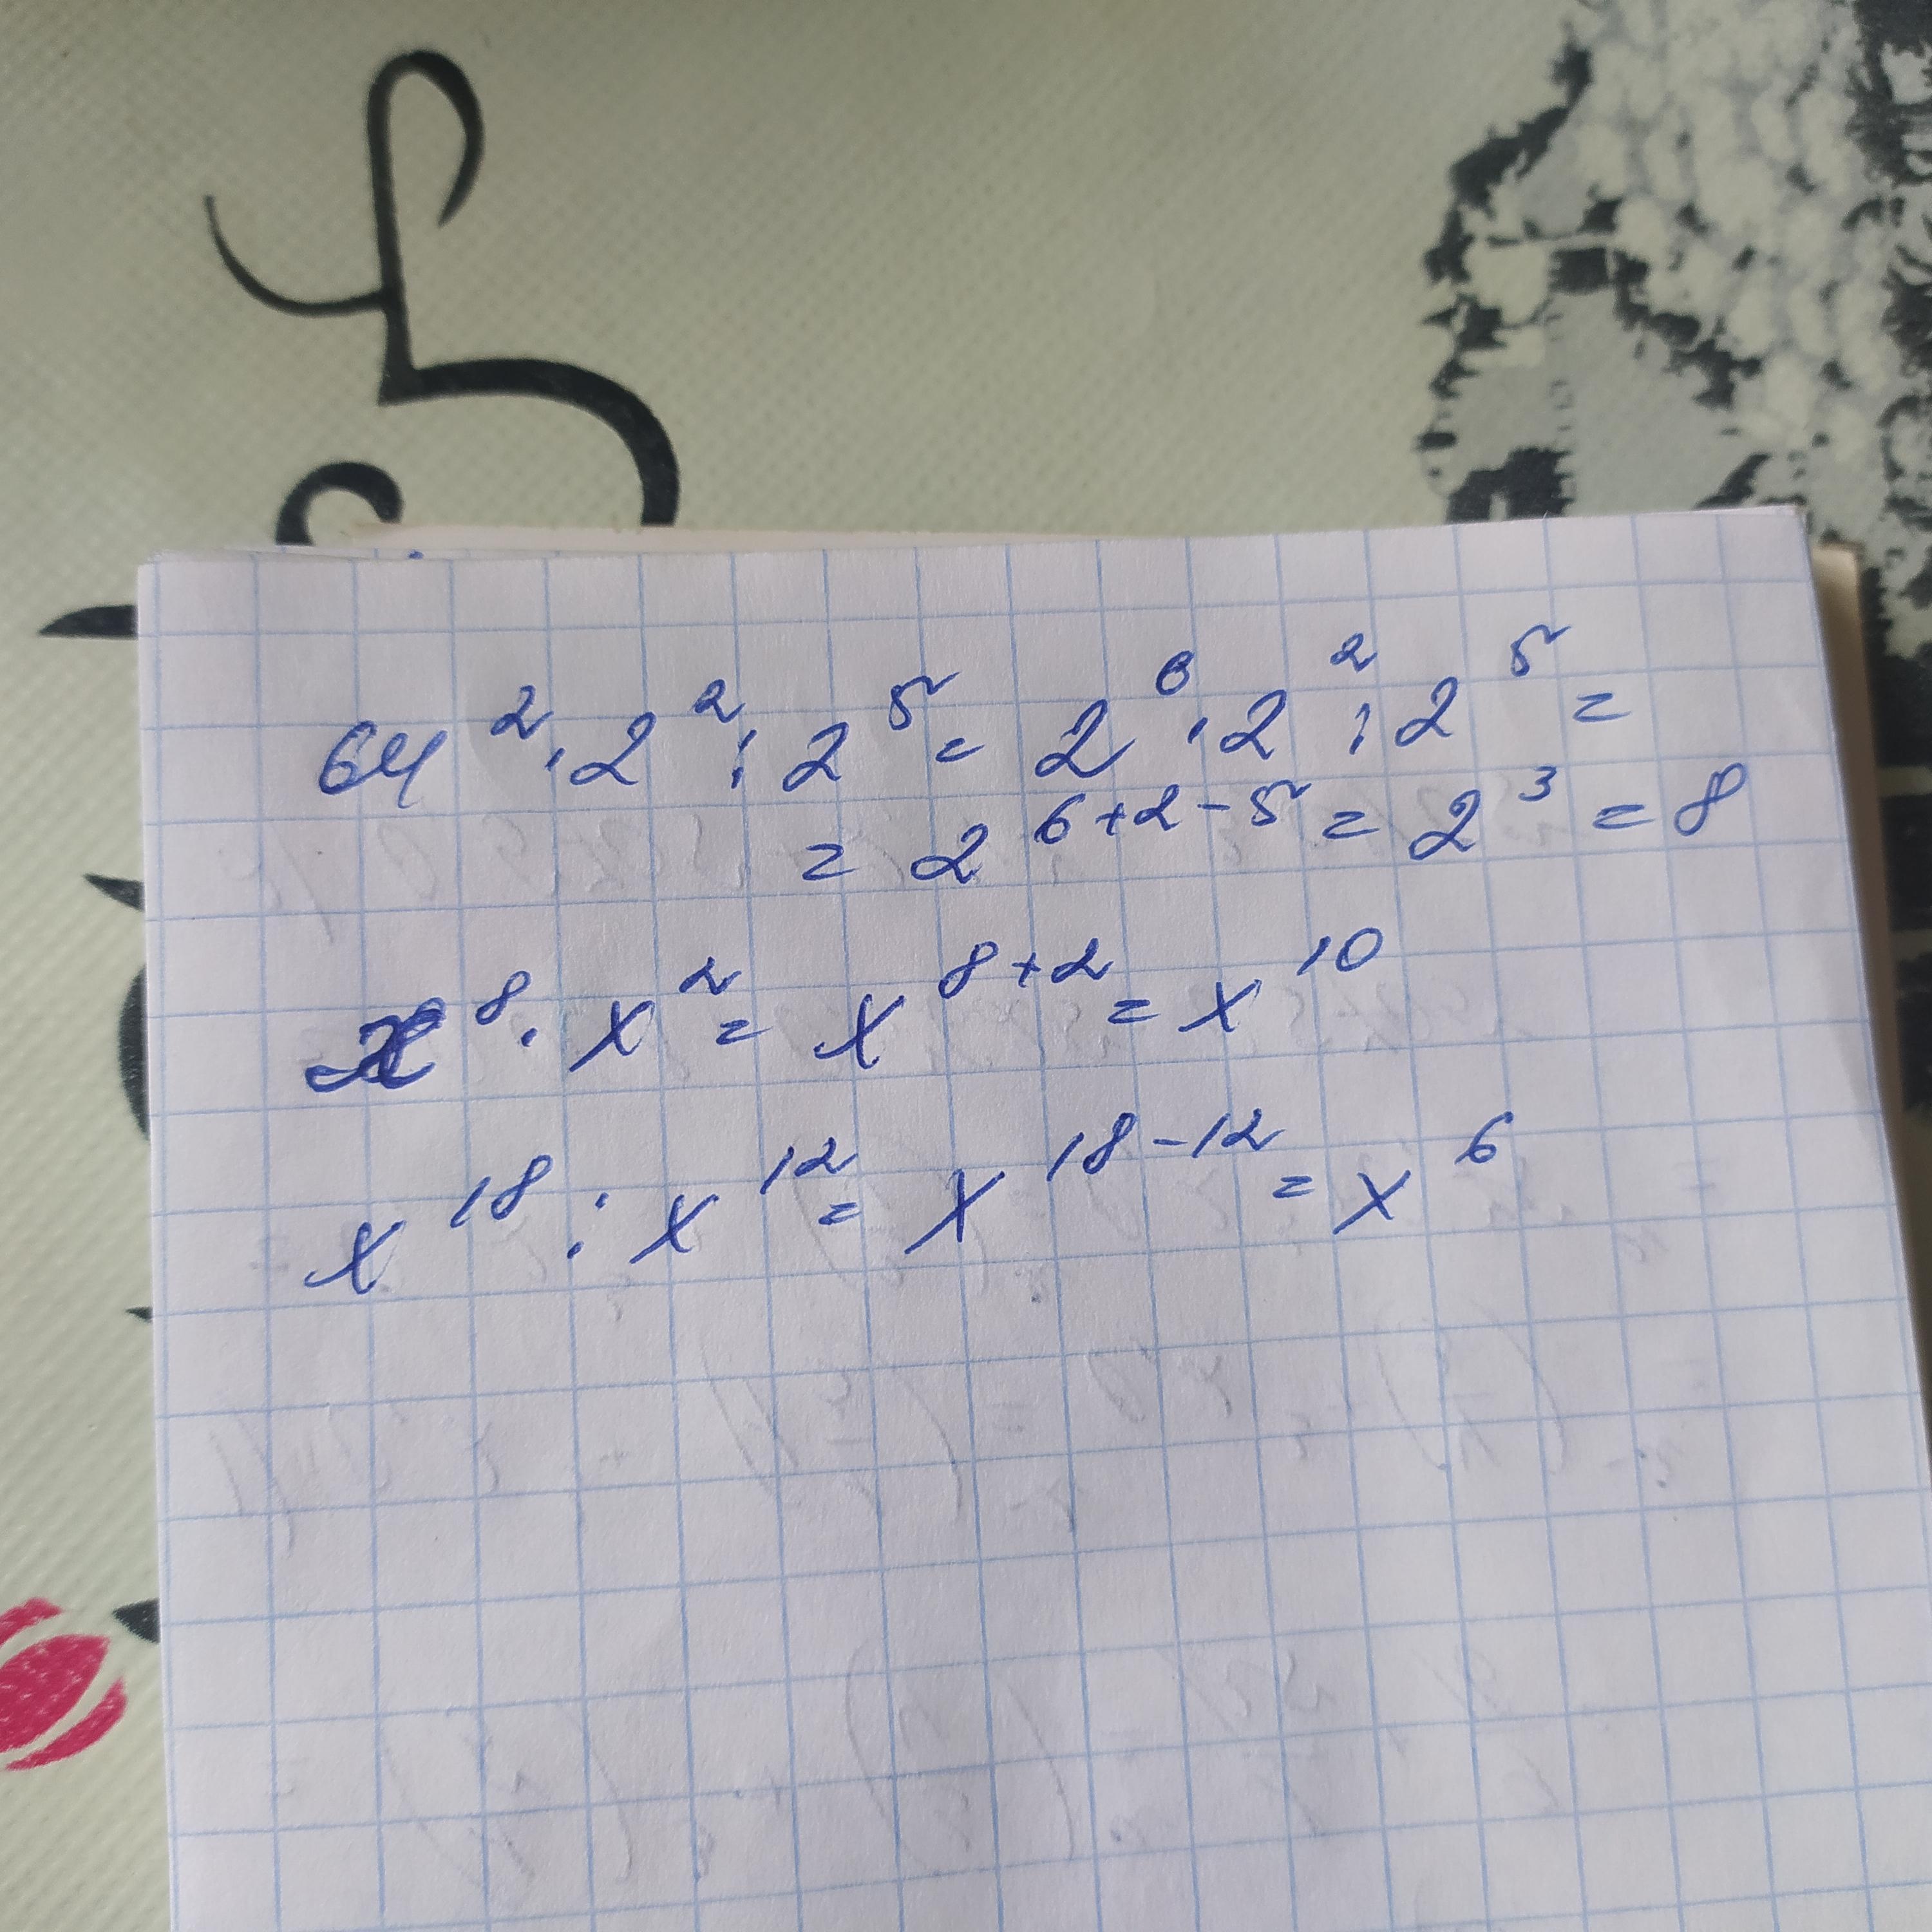 64² · 2² : 2⁵ = 2⁶ · 2² : 2⁵ =
= 2⁶⁺²⁻⁵ = 2³ = 8
x⁸ · x² = x⁸⁺² = x¹⁰
x¹⁸ : x¹² = x¹⁸⁻¹² = x⁶